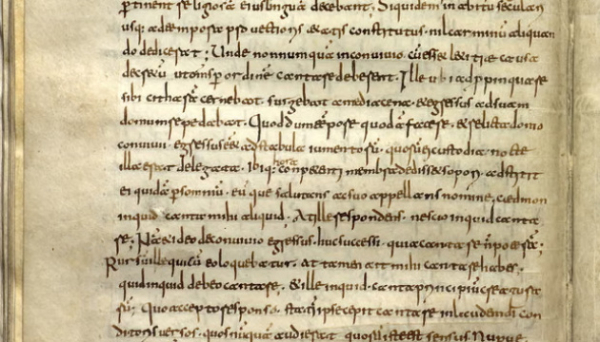 ptinent religiosā eius linguā decebant. Siquidem in abitu seculari
usq; ad tempora provectioris etatis constitutus. nil carminū aliquan
do dedicerat; Unde nonnumquā in convivio. cū esset letitiæ causa
decretū ut omīs per ordinē cantare deberent. Ille ubi adppinquare
sibi citharā cernebat. surgebat a media cena. et egressus ad suam
domum repedabat. Quod dum tempore quodā faceret. et relicta domo
convivii egressus eēt ad stabula iumentorū. quorū ei custodia nocte
illa erat delegata. ibiq; hora conpetenti membra dedisset sopori. adstitit
ei quidā p somniū. eūque salutans ac suo appellans nomine. cædmon
inquid canta mihi aliquid. At ille respondens. nescio inquid canta
re; Nā et ideo de convivio egressus. huc successi. quia cantare n̄ poterā;
Rursū ille qui cū eo loquebatur. At tamen ait mihi cantare habes.
quid inquid debeo cantare. Et ille inquid. canta principiū creatura
rū. Quo accepto responso. statī ipse cepit cantare in laudē dī con
ditoris versos. quos nūquā audierat quorū iste est sensus Nunc